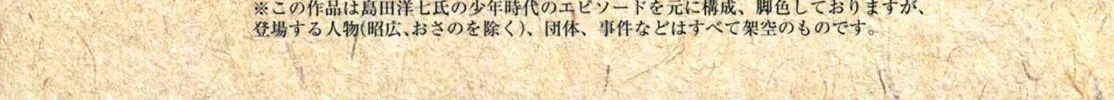 ※この作品は島田洋七氏の少年時代のエピソードを元に構成、脚色しておりますが、
登場する人物(昭広、おさのを除く)、団体、事件などはすべて架空のものです。